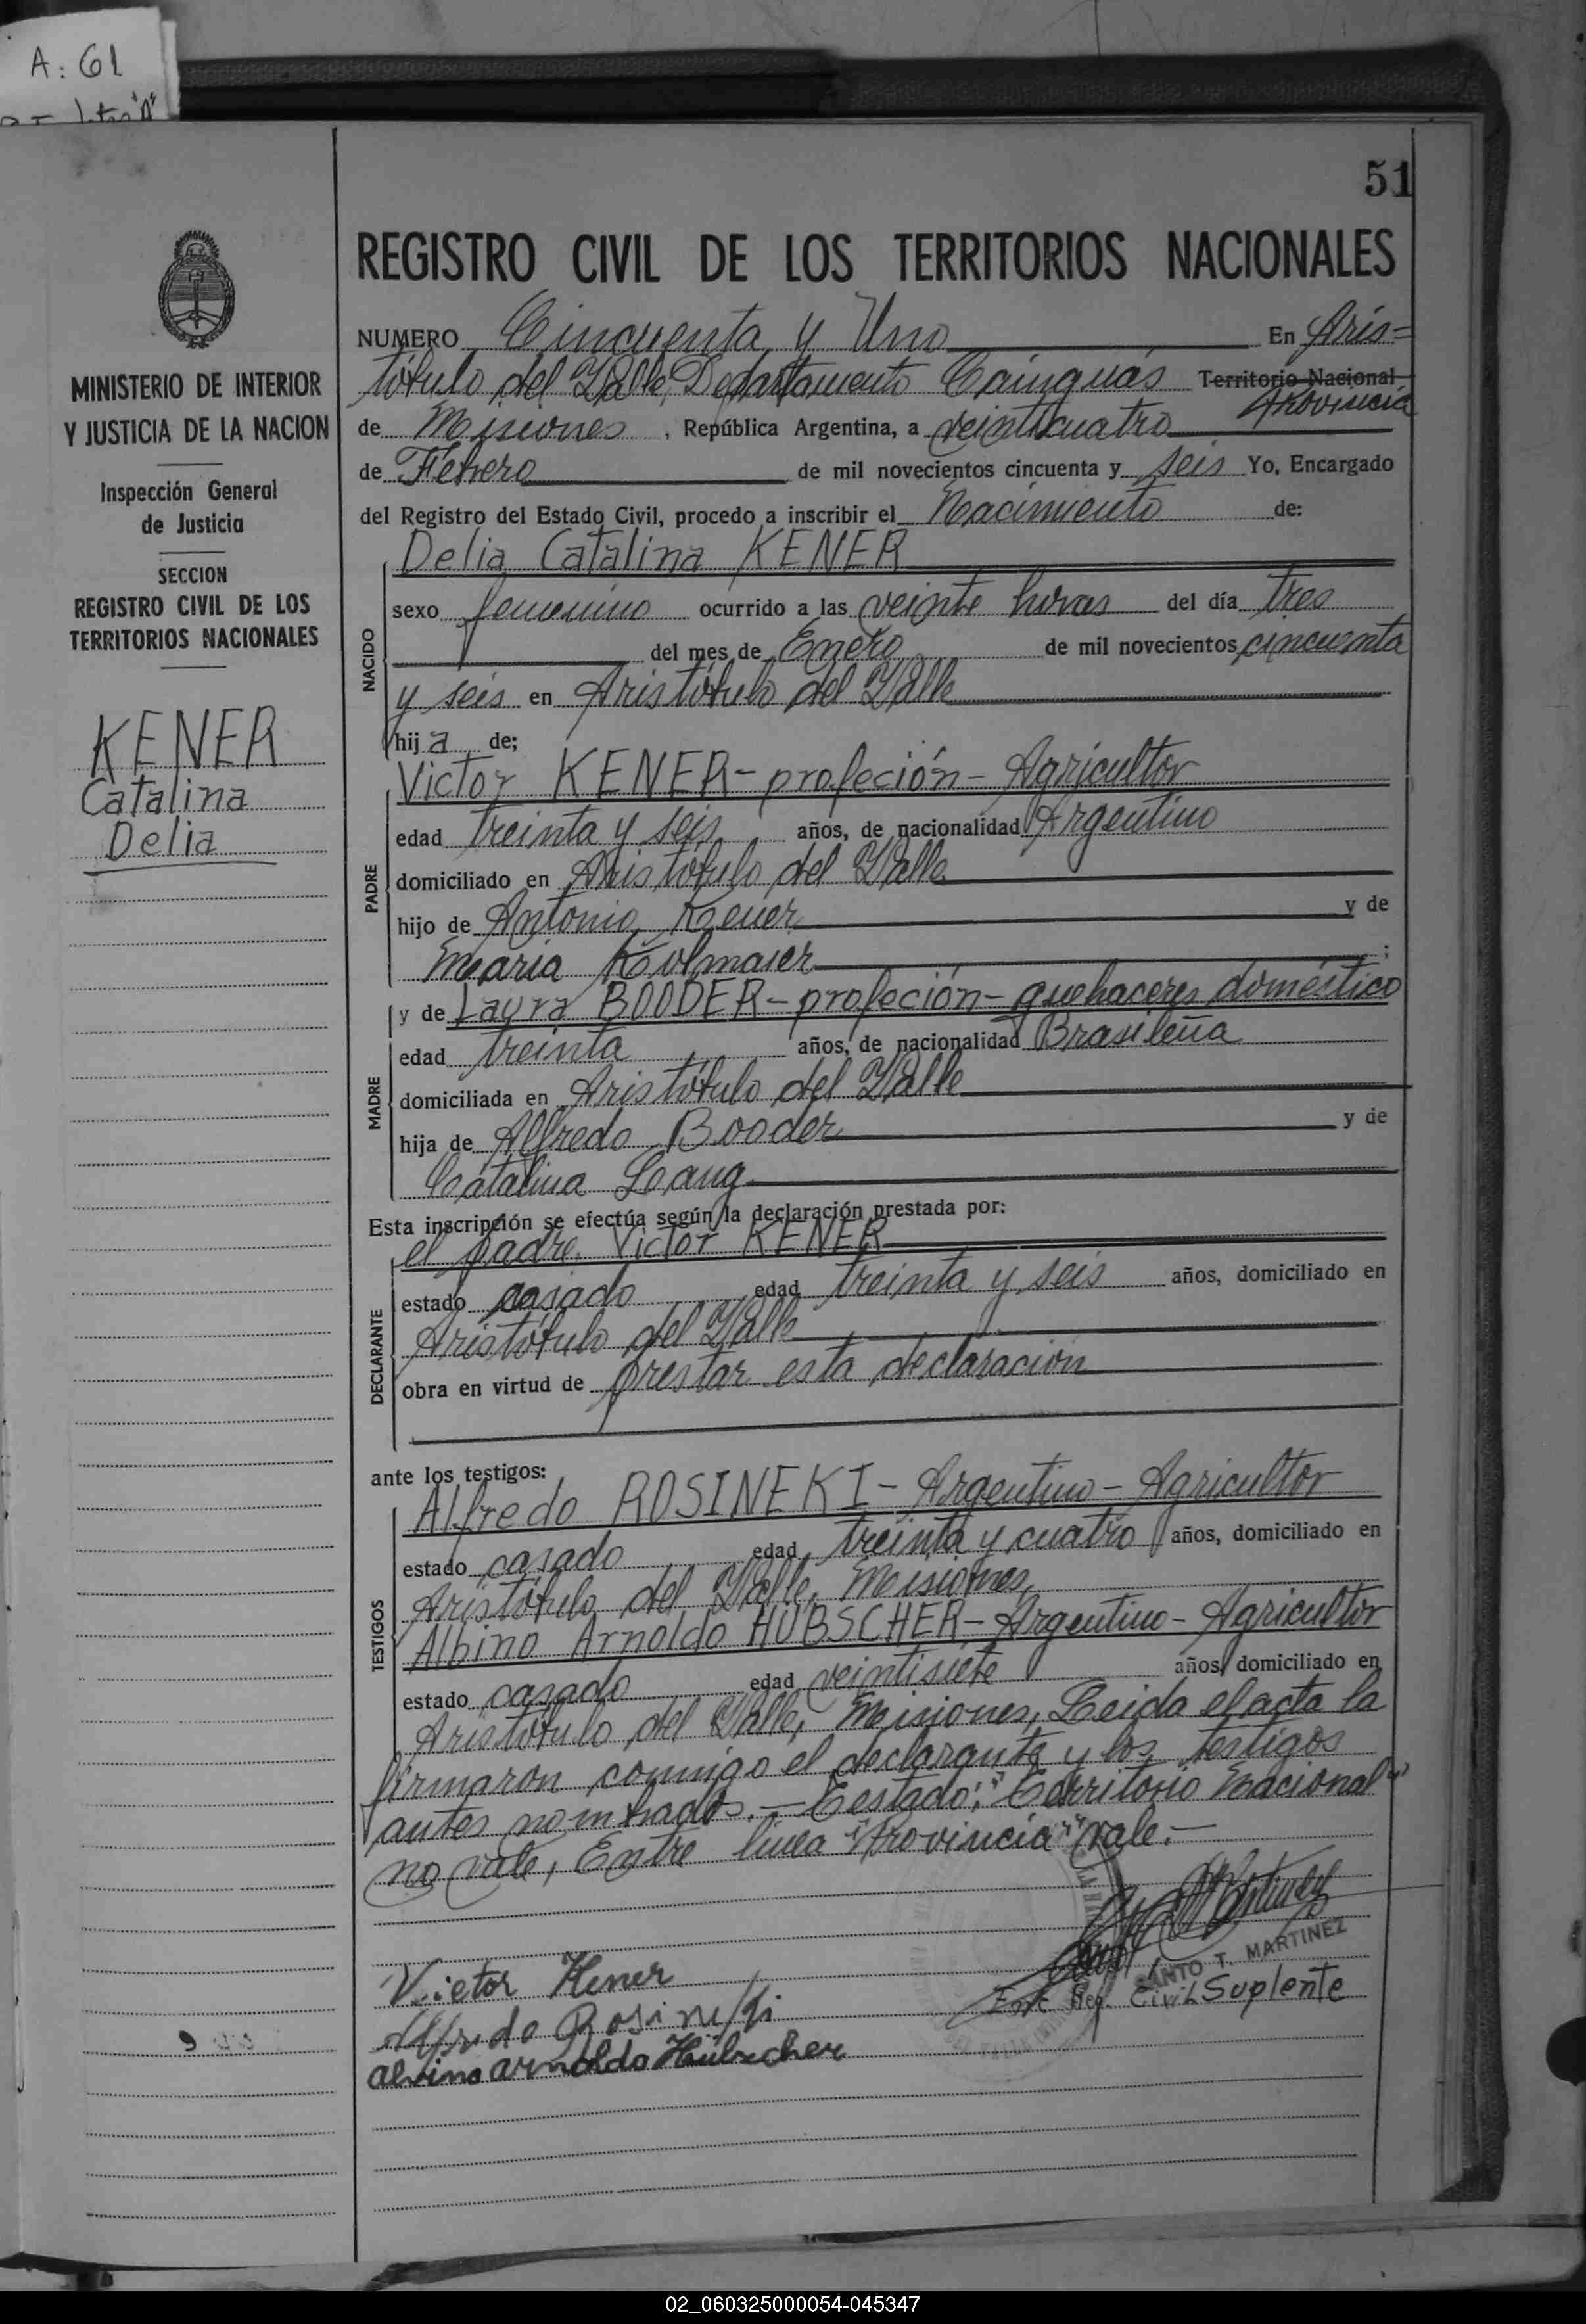 A: 61
51
MINISTERIO DE INTERIOR
Y JUSTICIA DE LA NACION
Inspección General
de Justicia
SECCION
REGISTRO CIVIL DE LOS
TERRITORIOS NACIONALES
KENER
Catalina
Delia
REGISTRO CIVIL DE LOS TERRITORIOS NACIONALES
NUMERO Cincuenta y Uno En Aris=
tóbulo del Valle, Departamento Cainguás Territorio Nacional
Provincia
de Misiones, República Argentina, a veinticuatro
de Febrero de mil novecientos cincuenta y seis Yo, Encargado
del Registro del Estado Civil, procedo a inscribir el Nacimiento de:
NACIDO
Delia Catalina KENER
sexo femenino ocurrido a las veinte horas del día tres
del mes de Enero de mil novecientos cincuenta
y seis en Aristóbulo del Valle
hija de;
PADRE
Victor KENER - profeción - Agricultor
edad treinta y seis años, de nacionalidad Argentino
domiciliado en Aristóbulo del Valle
hijo de Antonio Kener y de
Maria Kolmaier;
MADRE
y de Laura BOODER - profeción - quehaceres doméstico
edad treinta años, de nacionalidad Brasileña
domiciliada en Aristóbulo del Valle
hija de Alfredo Booder y de
Catalina Lang
Esta inscripción se efectúa según la declaración prestada por:
DECLARANTE
el padre, Victor KENER
estado casado edad treinta y seis años, domiciliado en
Aristóbulo del Valle
obra en virtud de prestar esta declaración
ante los testigos:
TESTIGOS
Alfredo ROSINEKI - Argentino - Agricultor
estado casado edad treinta y cuatro años, domiciliado en
Aristóbulo del Valle, Misiones,
Albino Arnoldo HÜBSCHER - Argentino - Agricultor
estado casado edad veintisiete años, domiciliado en
Aristóbulo del Valle, Misiones, Leida el acta la
firmaron conmigo el declarante y los testigos
antes nombrados. - Testado: "Territorio Nacional"
no vale, Entre linea "Provincia" vale. -
SANTO T. MARTINEZ
Enc. Reg. Civil Suplente
Victor Kener
Alfredo Rosineki
Alvino Arnoldo Hübscher
02_060325000054-045347